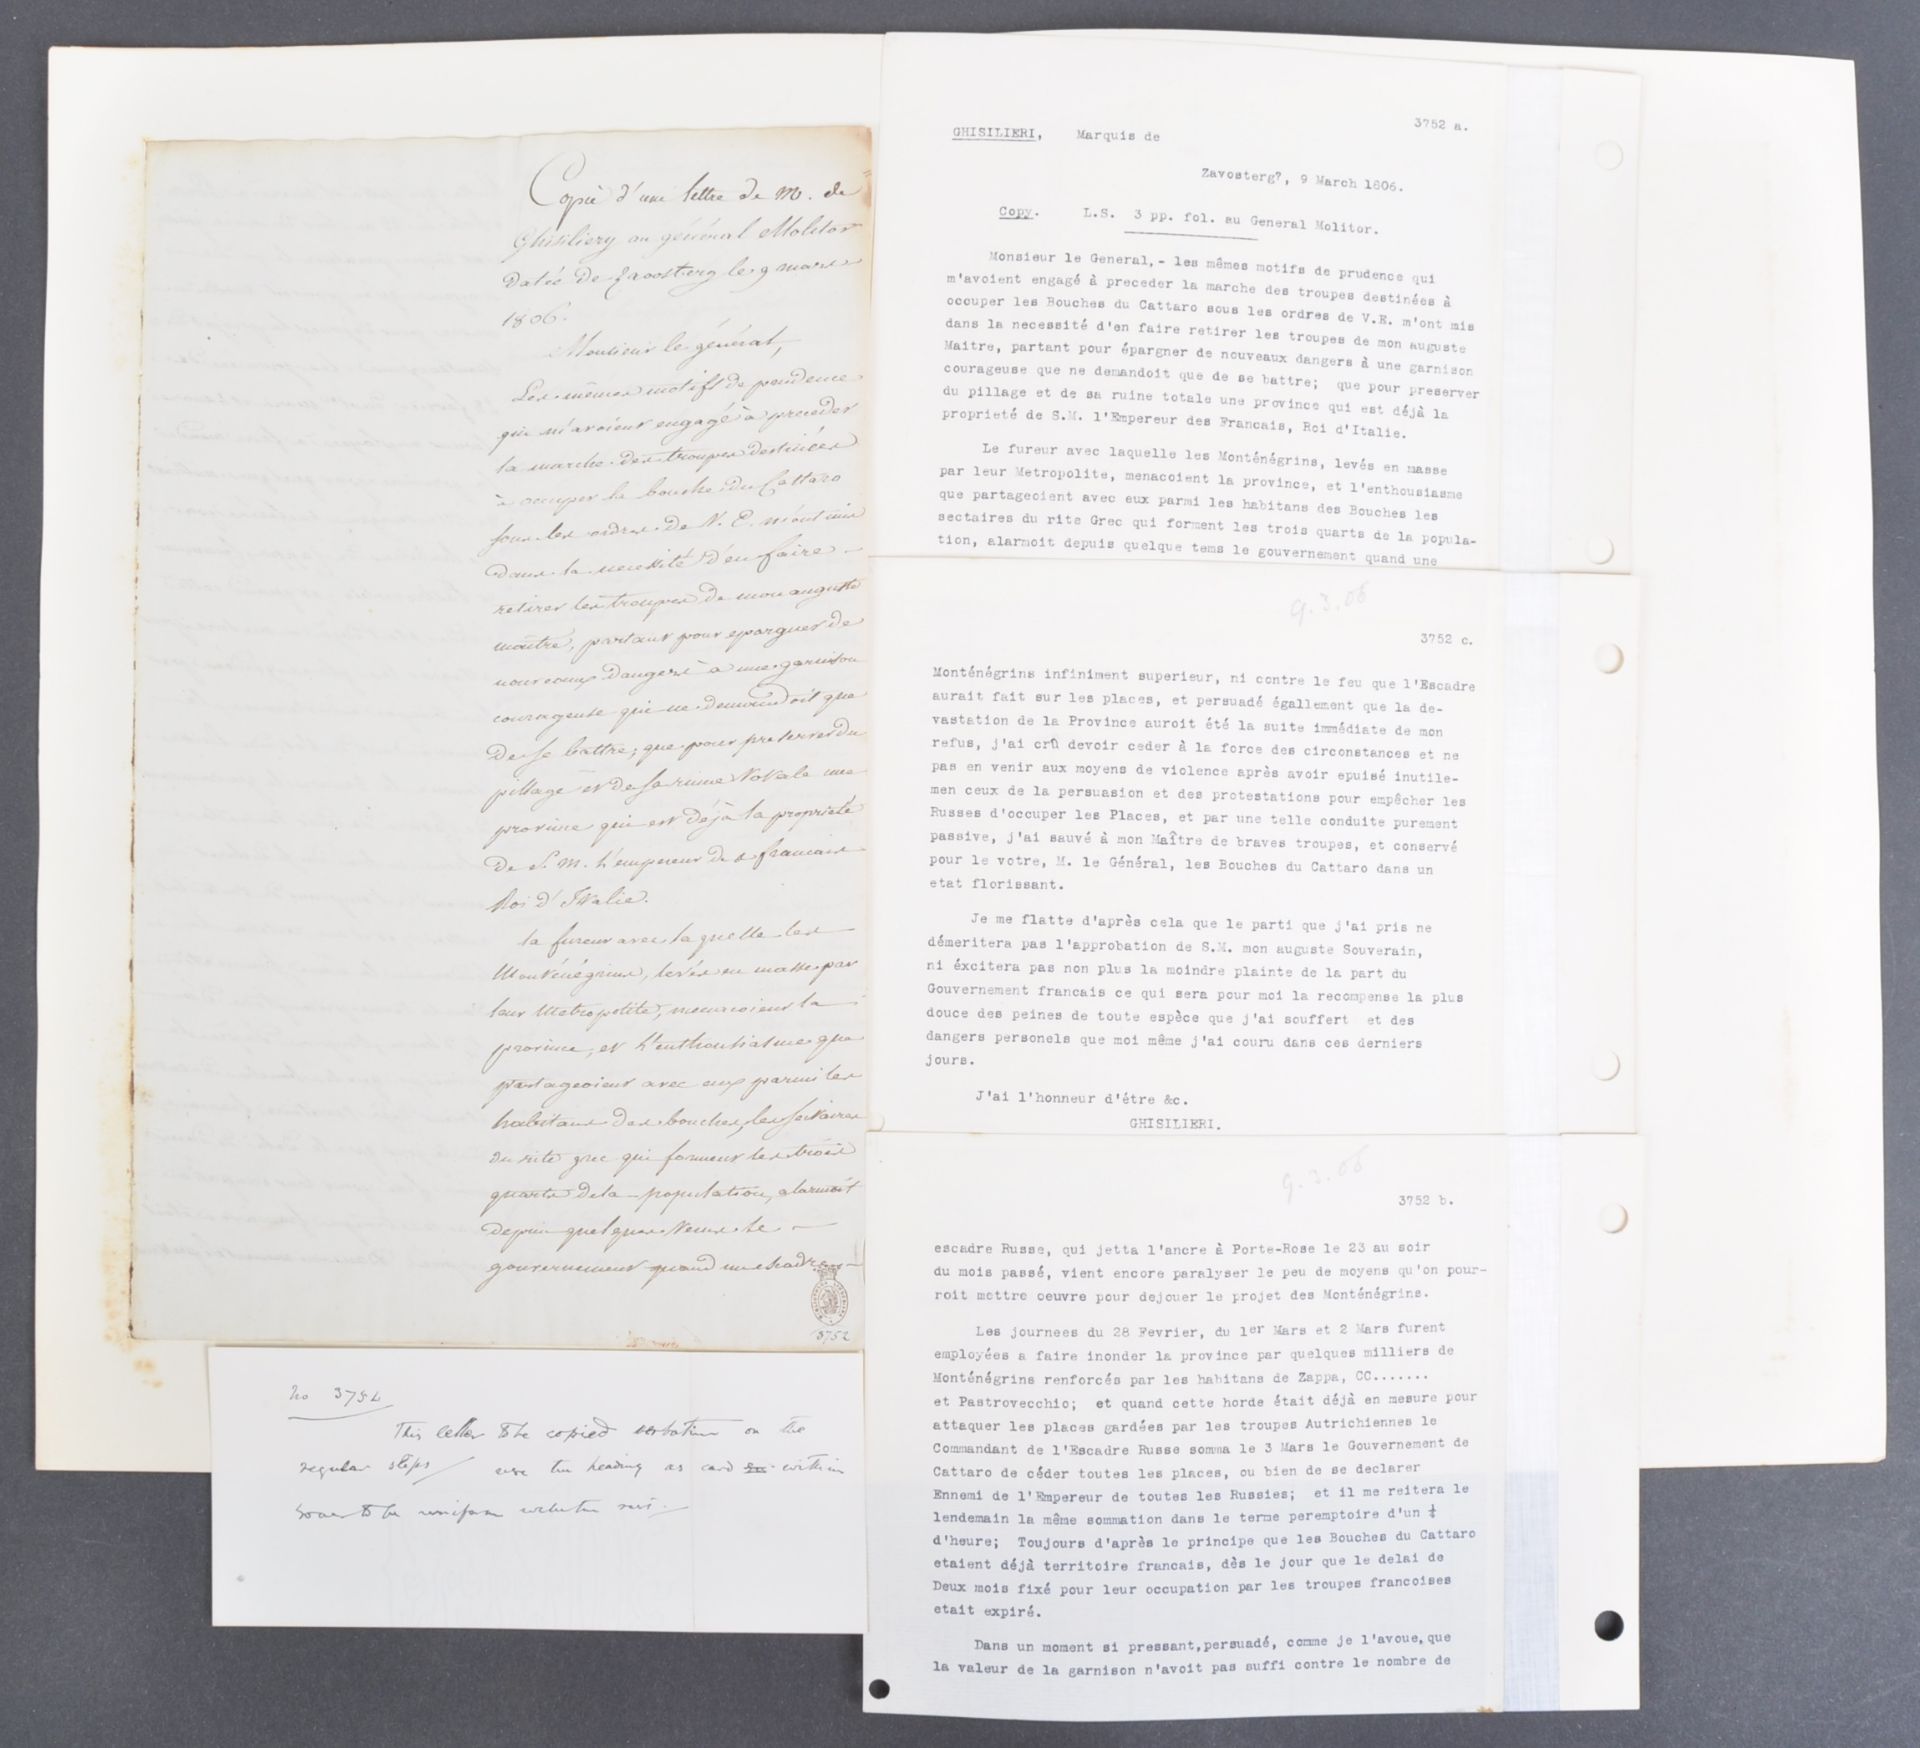 Copie d'une lettre de M. de
Ghisiliery au général Molitor
datée de Zavosterg le 9 mars
1806.
Monsieur le général,
Les mêmes motifs de prudence
qui m'avoient engagé à preceder
la marche des troupes destinées
à occuper la bouche du Cattaro
sous les ordres de V. E. m'ont mis
dans la necessité d'en faire
retirer les troupes de mon auguste
maitre, partant pour eparguer de
nouveaux dangers à une garnison
courageuse qui ne demandoit que
de se battre; que pour preserver du
pillage et de sa ruine totale une
province qui est déjà la propriété
de S. M. l'empereur des francais
Roi d'Italie.
la fureur avec laquelle les
Monténégrins, levés en masse par
leur Metropolite, menacoient la
province, et l'enthousiasme que
partageoient avec eux parmi les
habitans des bouches, les sectaires
du rite grec qui forment les trois
quarts de la population, alarmoit
depuis quelques tems le
gouvernement quand une escadre
3752
No 3752
This letter to be copied verbatim on the
regular slips / use the heading as card within
GHISILIERI, Marquis de
3752 a.
Zavosterg?, 9 March 1806.
Copy. L.S. 3 pp. fol. au General Molitor.
Monsieur le General,- les mêmes motifs de prudence qui
m'avoient engagé à preceder la marche des troupes destinées à
occuper les Bouches du Cattaro sous les ordres de V.E. m'ont mis
dans la necessité d'en faire retirer les troupes de mon auguste
Maitre, partant pour épargner de nouveaux dangers à une garnison
courageuse que ne demandoit que de se battre; que pour preserver
du pillage et de sa ruine totale une province qui est déjà la
proprieté de S.M. l'Empereur des Francais, Roi d'Italie.
Le fureur avec laquelle les Monténégrins, levés en masse
par leur Metropolite, menacoient la province, et l'enthousiasme
que partageoient avec eux parmi les habitans des Bouches les
sectaires du rite Grec qui forment les trois quarts de la popula-
tion, alarmoit depuis quelque tems le gouvernement quand une
9.3.06
3752 c.
Monténégrins infiniment superieur, ni contre le feu que l'Escadre
aurait fait sur les places, et persuadé égallement que la de-
vastation de la Province auroit été la suite immédiate de mon
refus, j'ai crû devoir ceder à la force des circonstances et ne
pas en venir aux moyens de violence après avoir epuisé inutile-
men ceux de la persuasion et des protestations pour empêcher les
Russes d'occuper les Places, et par une telle conduite purement
passive, j'ai sauvé à mon Maître de braves troupes, et conservé
pour le votre, M. le Général, les Bouches du Cattaro dans un
etat florissant.
Je me flatte d'après cela que le parti que j'ai pris ne
démeritera pas l'approbation de S.M. mon auguste Souverain,
ni éxcitera pas non plus la moindre plainte de la part du
Gouvernement francais ce qui sera pour moi la recompense la plus
douce des peines de toute espèce que j'ai souffert et des
dangers personels que moi même j'ai couru dans ces derniers
jours.
J'ai l'honneur d'étre &c.
GHISILIERI.
9.3.06
3752 b.
escadre Russe, qui jetta l'ancre à Porte-Rose le 23 au soir
du mois passé, vient encore paralyser le peu de moyens qu'on pour-
roit mettre oeuvre pour dejouer le projet des Monténégrins.
Les journees du 28 Fevrier, du 1er Mars et 2 Mars furent
employées a faire inonder la province par quelques milliers de
Monténégrins renforcés par les habitans de Zappa, CC.......
et Pastrovecchio; et quand cette horde était déjà en mesure pour
attaquer les places gardées par les troupes Autrichiennes le
Commandant de l'Escadre Russe somma le 3 Mars le Gouvernement de
Cattaro de céder toutes les places, ou bien de se declarer
Ennemi de l'Empereur de toutes les Russies; et il me reitera le
lendemain la même sommation dans le terme peremptoire d'un ¼
d'heure; Toujours d'après le principe que les Bouches du Cattaro
etaient déjà territoire francais, dès le jour que le delai de
Deux mois fixé pour leur occupation par les troupes francoises
etait expiré.
Dans un moment si pressant,persuadé, comme je l'avoue,que
la valeur de la garnison n'avoit pas suffi contre le nombre de